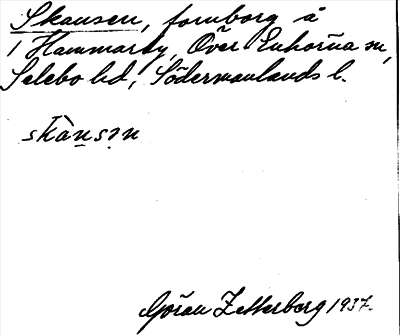 Skansen, fornborg å
1 Hammarby, Över Enhörna sn,
Selebo hd, Södermanlands l.
skànsən
Göran Zetterberg 1937.